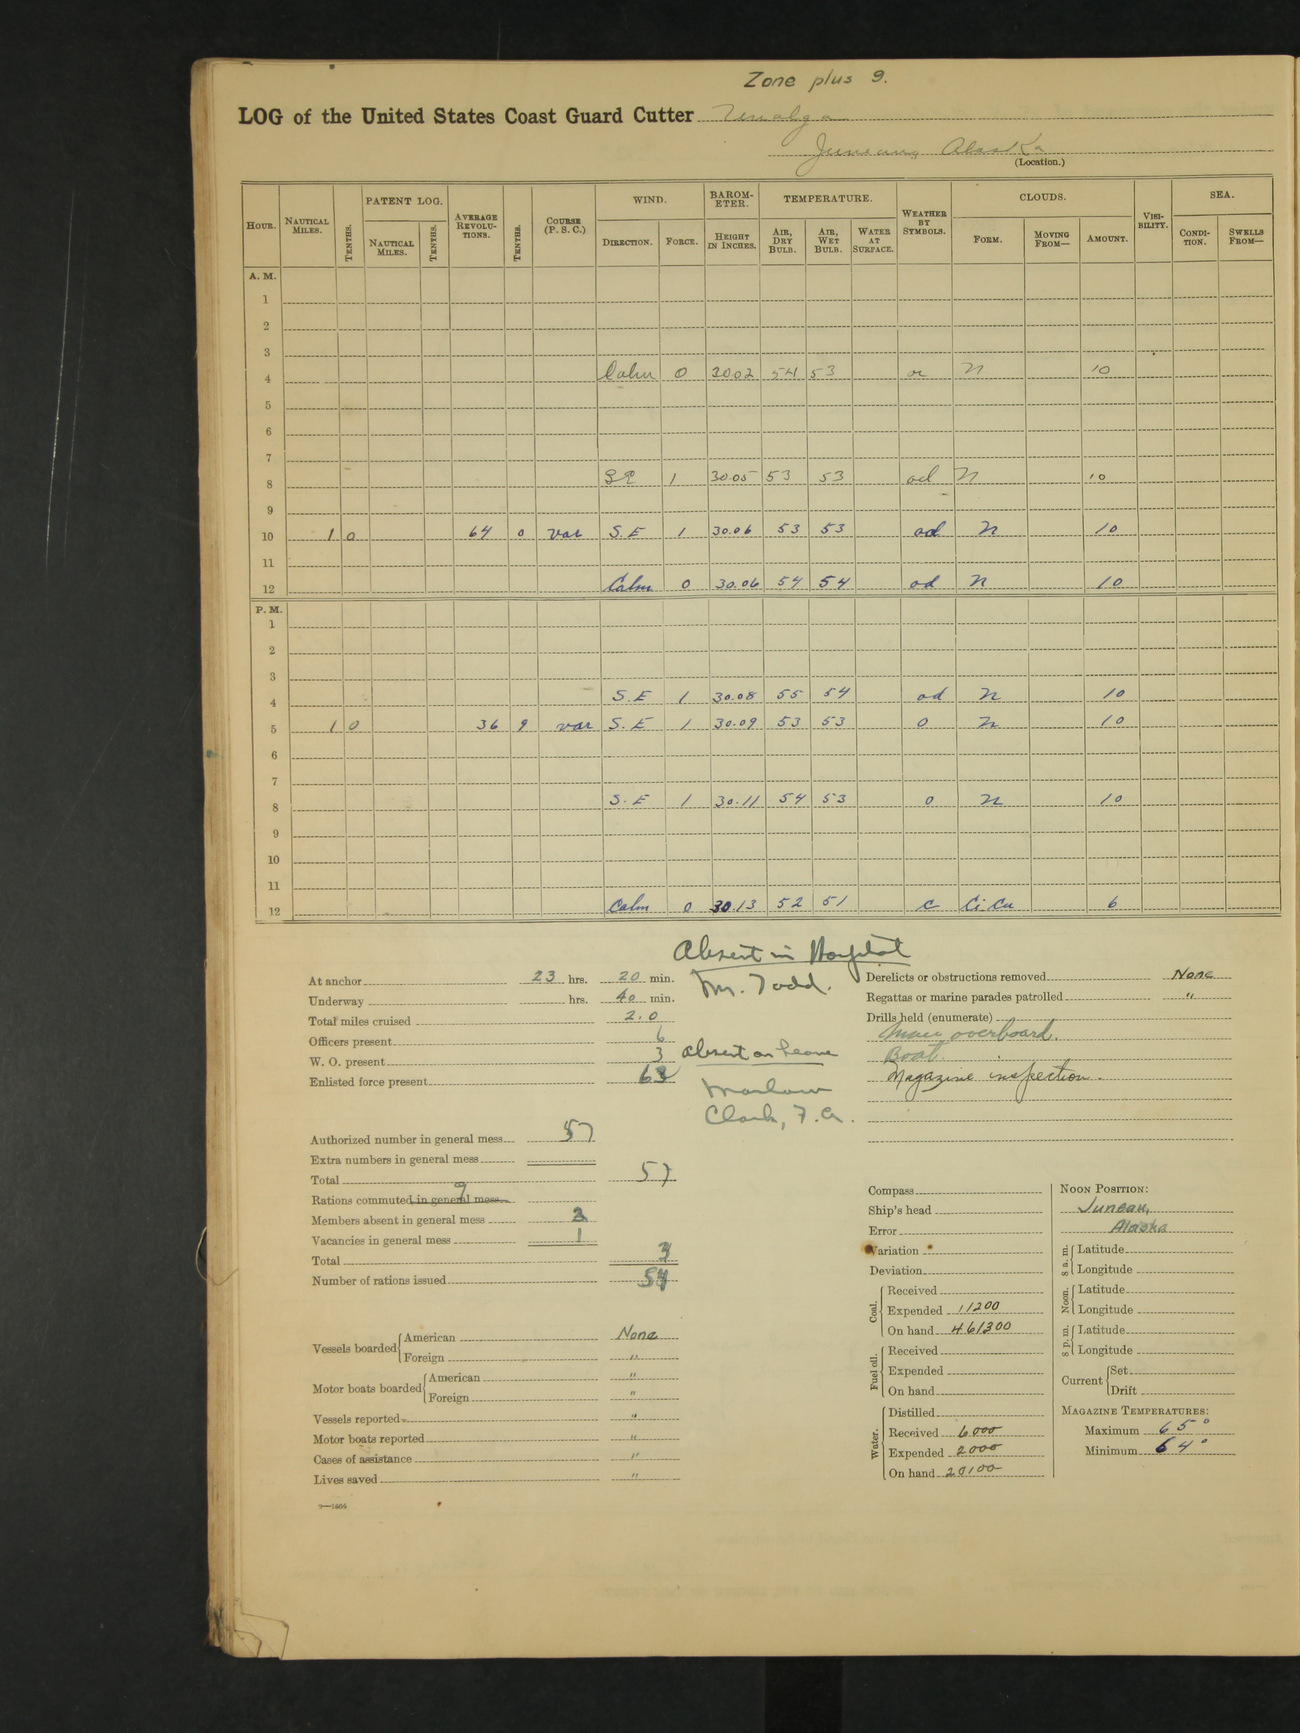 Zone plus 9.
LOG of the United States Coast Guard Cutter Unalga
Juneau, Alaska
(Location.)
HOUR. NAUTICAL MILES. TENTHS. PATENT LOG. NAUTICAL MILES. TENTHS. AVERAGE REVOLUTIONS. TENTHS. COURSE (P. S. C.) WIND. DIRECTION. FORCE. BAROMETER. HEIGHT IN INCHES. TEMPERATURE. AIR, DRY BULB. AIR, WET BULB. WATER AT SURFACE. WEATHER BY SYMBOLS. CLOUDS. FORM. MOVING FROM— AMOUNT. VISIBILITY. SEA. CONDITION. SWELLS FROM—
A. M.
1
2
3
4 Calm 0 30.02 54 53 N 10
5
6
7
8 SE 1 30.05 53 53 od N 10
9
10 1 0 64 0 var S.E 1 30.06 53 53 od N 10
11
12 Calm 0 30.06 54 54 od N 10
P. M.
1
2
3
4 S.E 1 30.08 55 54 od N 10
5 1 0 36 9 var S.E 1 30.09 53 53 0 N 10
6
7
8 S.E 1 30.11 54 53 0 N 10
9
10
11
12 Calm 0 30.13 52 51 c Ci Cu 6
Absent in Hospital
Mr. Todd.
Absent on Leave
Marlow
Clark, F. A.
At anchor 23 hrs. 20 min.
Underway hrs. 40 min.
Total miles cruised 2.0
Officers present 6
W. O. present 3
Enlisted force present 63
Authorized number in general mess 57
Extra numbers in general mess
Total 57
Rations commuted in general mess 9
Members absent in general mess 2
Vacancies in general mess 1
Total 3
Number of rations issued 54
Vessels boarded American None
Foreign "
Motor boats boarded American "
Foreign "
Vessels reported "
Motor boats reported "
Cases of assistance "
Lives saved "
9—1464
Derelicts or obstructions removed None
Regattas or marine parades patrolled "
Drills held (enumerate)
Man overboard.
Boat.
Magazine inspection.
Compass
Ship's head
Error
Variation
Deviation
Coal. Received
Expended 11200
On hand 461300
Fuel oil. Received
Expended
On hand
Water. Distilled
Received 6000
Expended 2000
On hand 20100
NOON POSITION:
Juneau,
Alaska
8 a.m. Latitude
Longitude
Noon. Latitude
Longitude
8 p.m. Latitude
Longitude
Current Set
Drift
MAGAZINE TEMPERATURES:
Maximum 65°
Minimum 64°